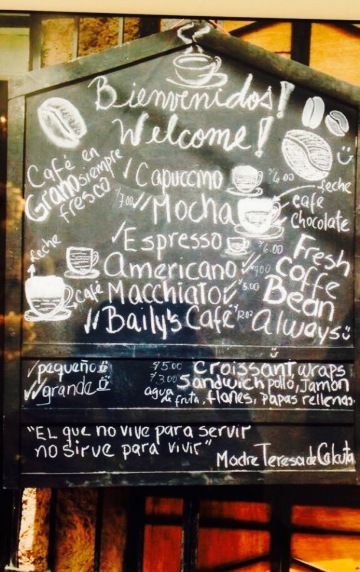 Bienvenidos!
Welcome!
Café en
Grano siempre
fresco
✓ Capuccino 6.00
7.00 ✓✓ Mocha
leche
café
chocolate
✓ Espresso 6.00
Fresh
Coffe
Bean
Always
leche
café
Americano ✓
Macchiato ✓ 5.00
✓✓ Baily's Café
✓ pequeño
✓✓ grande
$5.00 Croissant wraps
$3.00 Sandwich pollo, Jamon
agua
de fruta, flanes, papas rellenas
"EL que no vive para servir
no sirve para vivir"
Madre Teresa de Calcuta